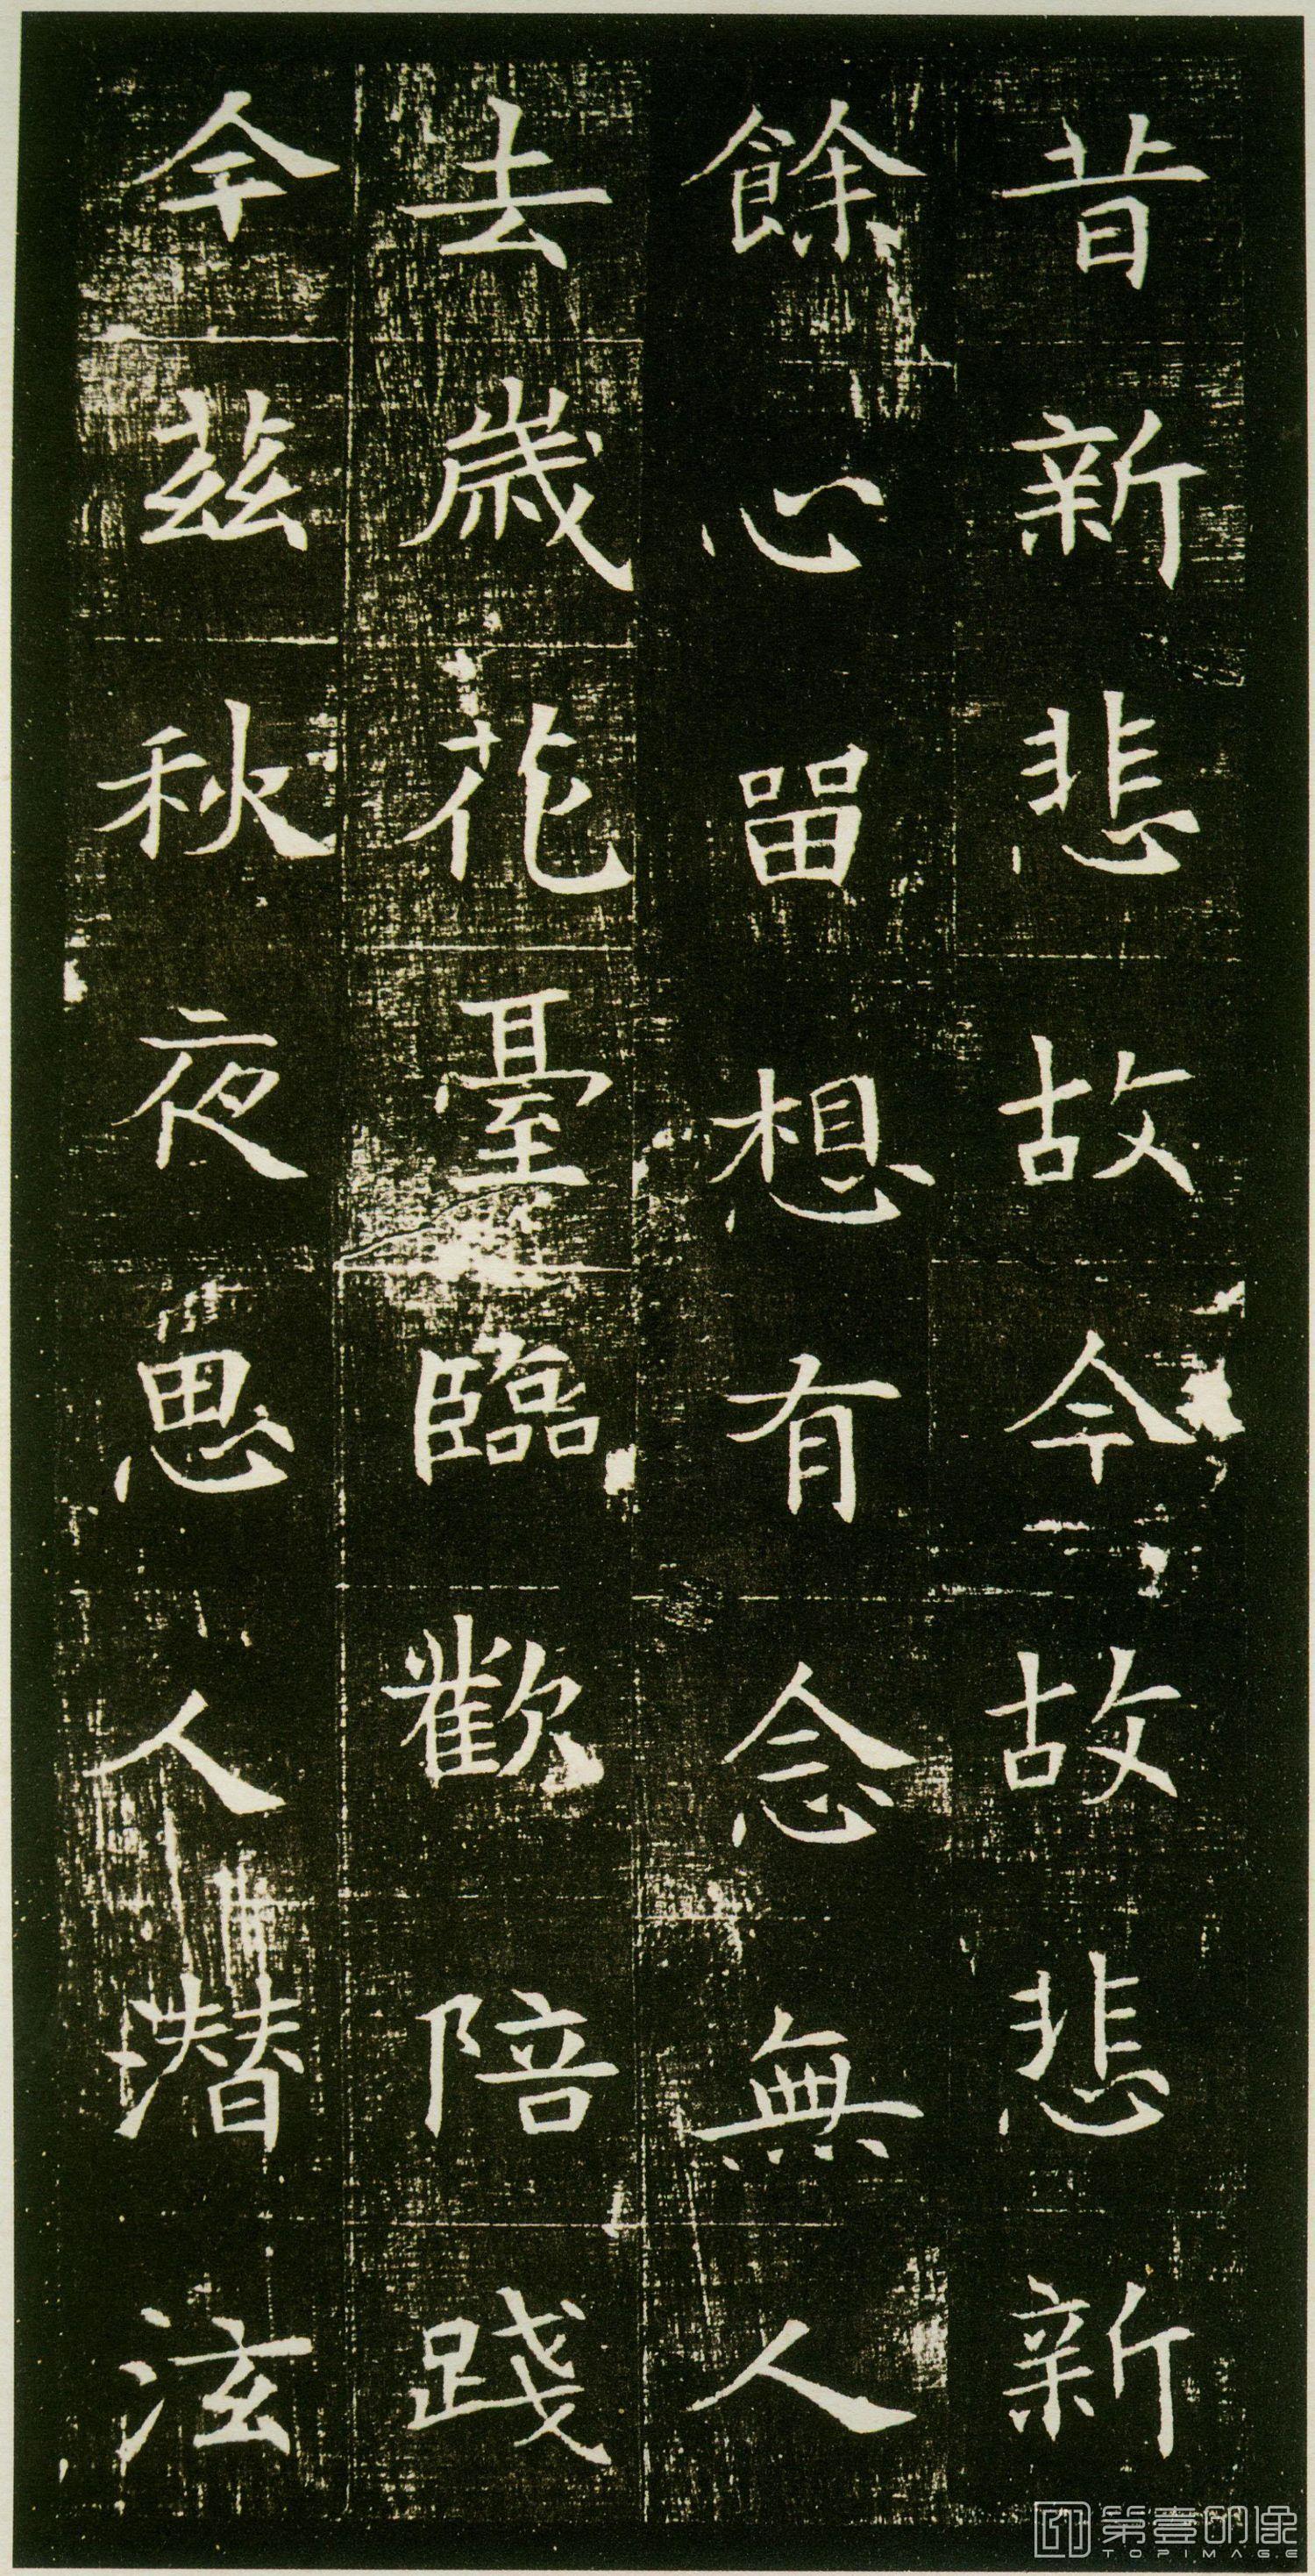 昔新悲故今故悲新
餘心留想有念無人
去歲花臺臨歡陪踐
今茲秋夜思人潜泫
第壹印像
TOPIMAGE